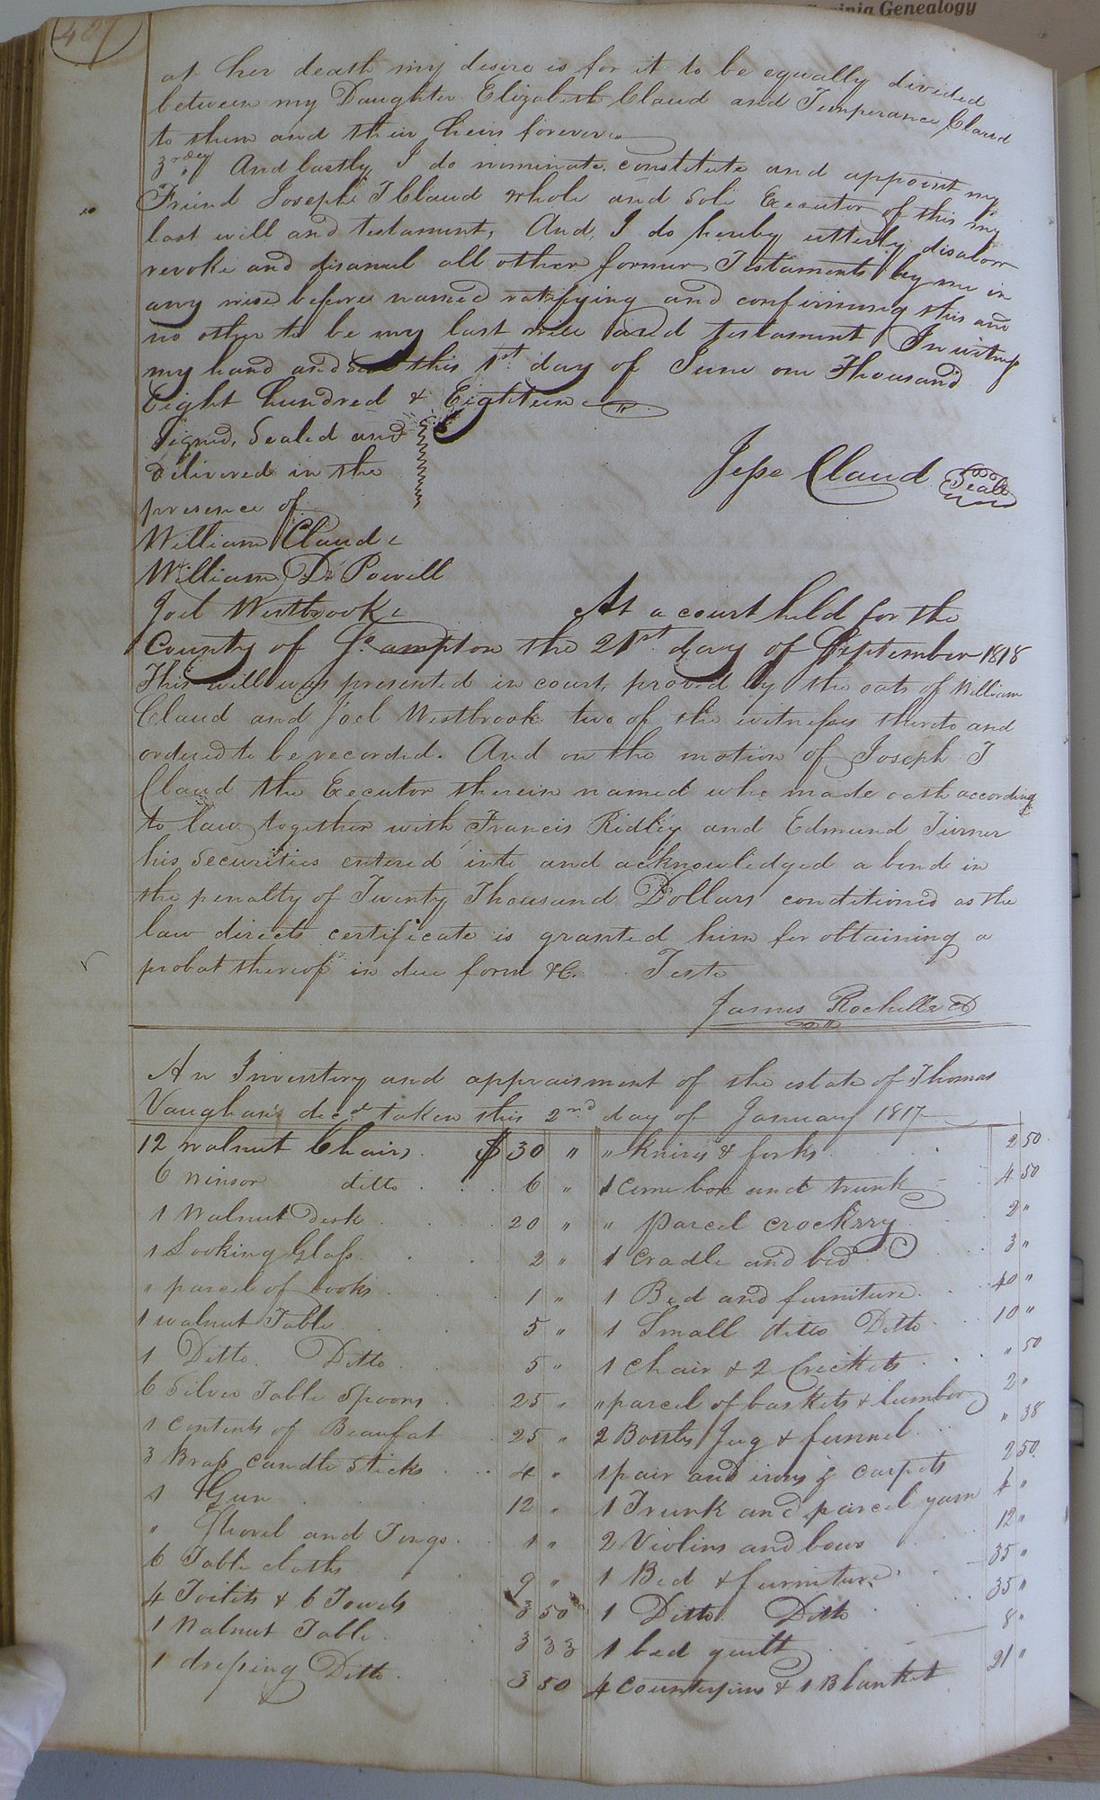 407
Virginia Genealogy
at her death my desire is for it to be equally divided
between my Daughter Elizabeth Claud and Temperance Claud
to them and their heirs forever
3rdly And lastly I do nominate constitute and appoint my
Friend Joseph T Claud whole and Sole Executor of this my
last will and testament, And, I do hereby utterly disalow
revoke and disanul all other former Testaments by me in
any wise before named ratifying and confirming this and
no other to be my last will and testament In witness
my hand and seal this 1st day of June one Thousand
Eight hundred & Eighteen
Signed, Sealed and
delivered in the
presence of
Jesse Claud Seal
William Claud
William D Powell
Joel Westbrook
At a court held for the
County of So.ampton the 21st day of September 1818
This will was presented in court, proved by the oats of William
Claud and Joel Westbrook two of the witnesses thereto and
ordered to be recorded. And on the motion of Joseph T
Claud the Executor therein named who made oath according
to law together with Francis Ridley and Edmund Turner
his Securities entered into and acknowledged a bond in
the penalty of Twenty Thousand Dollars conditioned as the
law directs certificate is granted him for obtaining a
probat thereof in due form &C. Teste
James Rochelle
An Inventory and appraisment of the estate of Thomas
Vaughan decd taken this 2nd day of January 1817
12 walnut Chairs $ 30 " " knives & forks 2 50
6 winsor ditto 6 " 1 box and trunk 4 50
1 Walnut Desk 20 " " parcel crockery 2 "
1 Looking Glass 2 " 1 cradle and bed 3 "
" parcel of books 1 " 1 Bed and furniture 40 "
1 walnut Table 5 " 1 Small ditto Ditto 10 "
1 Ditto Ditto 5 " 1 chair & 2 Crickets " 50
6 Silver Table Spoons 25 " " parcel of baskets & lumber 2 "
1 Contents of Beaufat 25 " 2 Bottles Jug & funnel " 38
3 Brass candle Sticks 4 " 1 pair and irons & carpets 2 50
1 Gun 12 " 1 Trunk and parcel yarn "
" Shovel and Tongs 1 " 2 Violins and bows 12 "
6 Table cloths 9 " 1 Bed & furniture 35 "
4 Toilets & 6 Towels 3 50 1 Ditto Ditto 35 "
1 Walnut Table 3 33 1 bed quilt 8 "
1 dressing Ditto 3 50 4 Counterpins & 1 Blanket 21 "